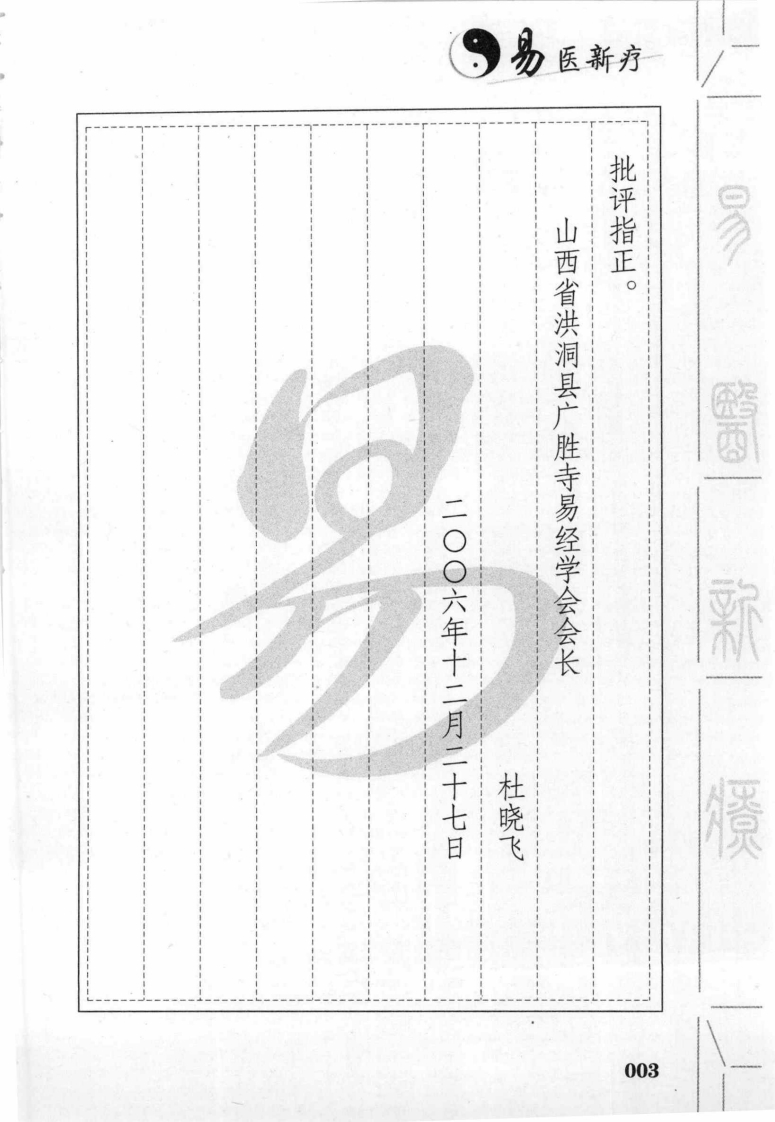 易医新疗
批评指正。
山西省洪洞县广胜寺易经学会会长
杜晓飞
二〇〇六年十二月二十七日
易
易
醫
新
療
003